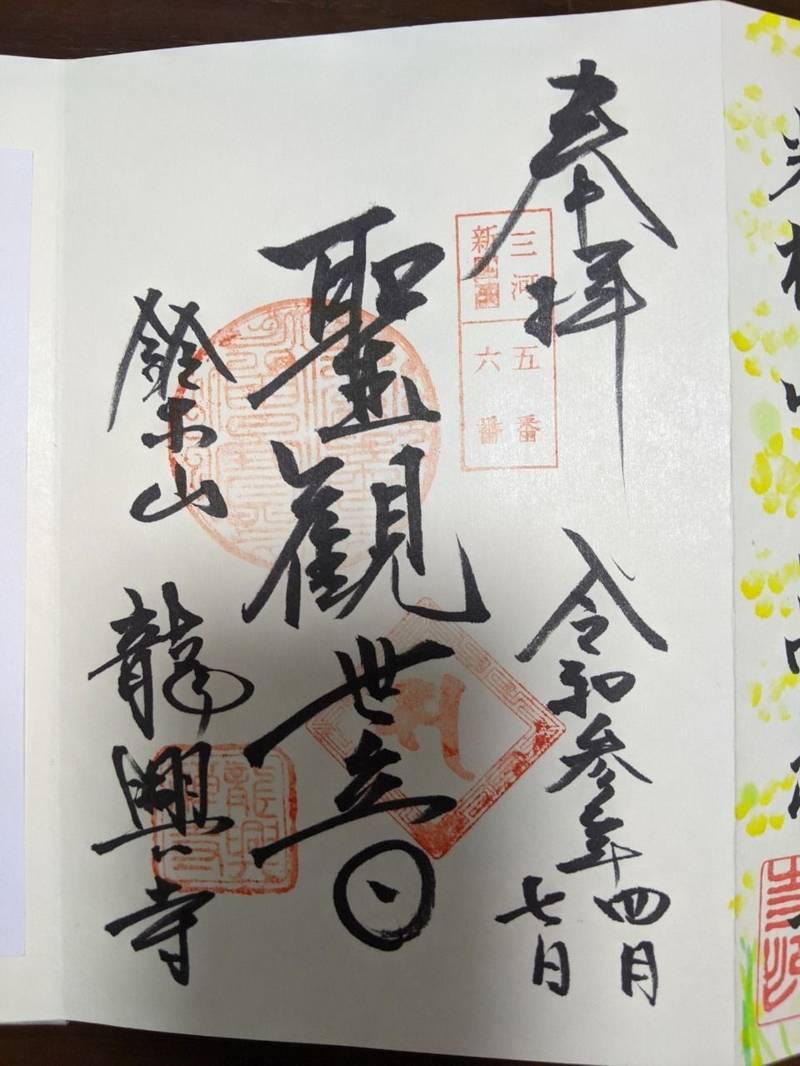 奉拝
三河 五番
新四国 六番
令和参年四月
七日
聖観世音
鈴木山 龍興寺